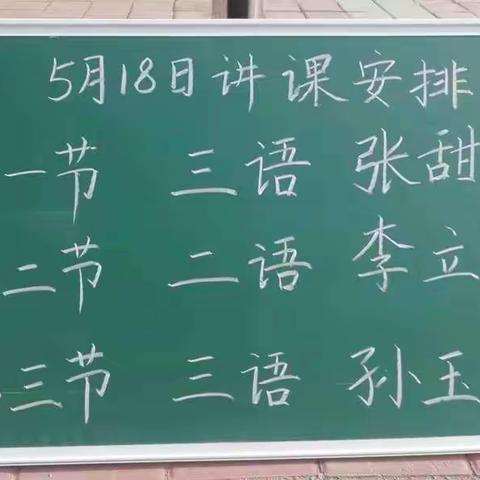 5月18日讲课安排
一节 三语 张甜
二节 二语 李立
三节 三语 孙玉